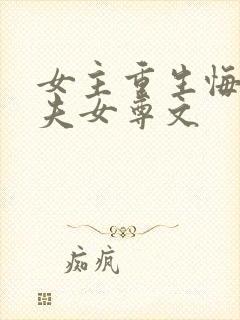 女主重生悔
夫女尊文
痴疯